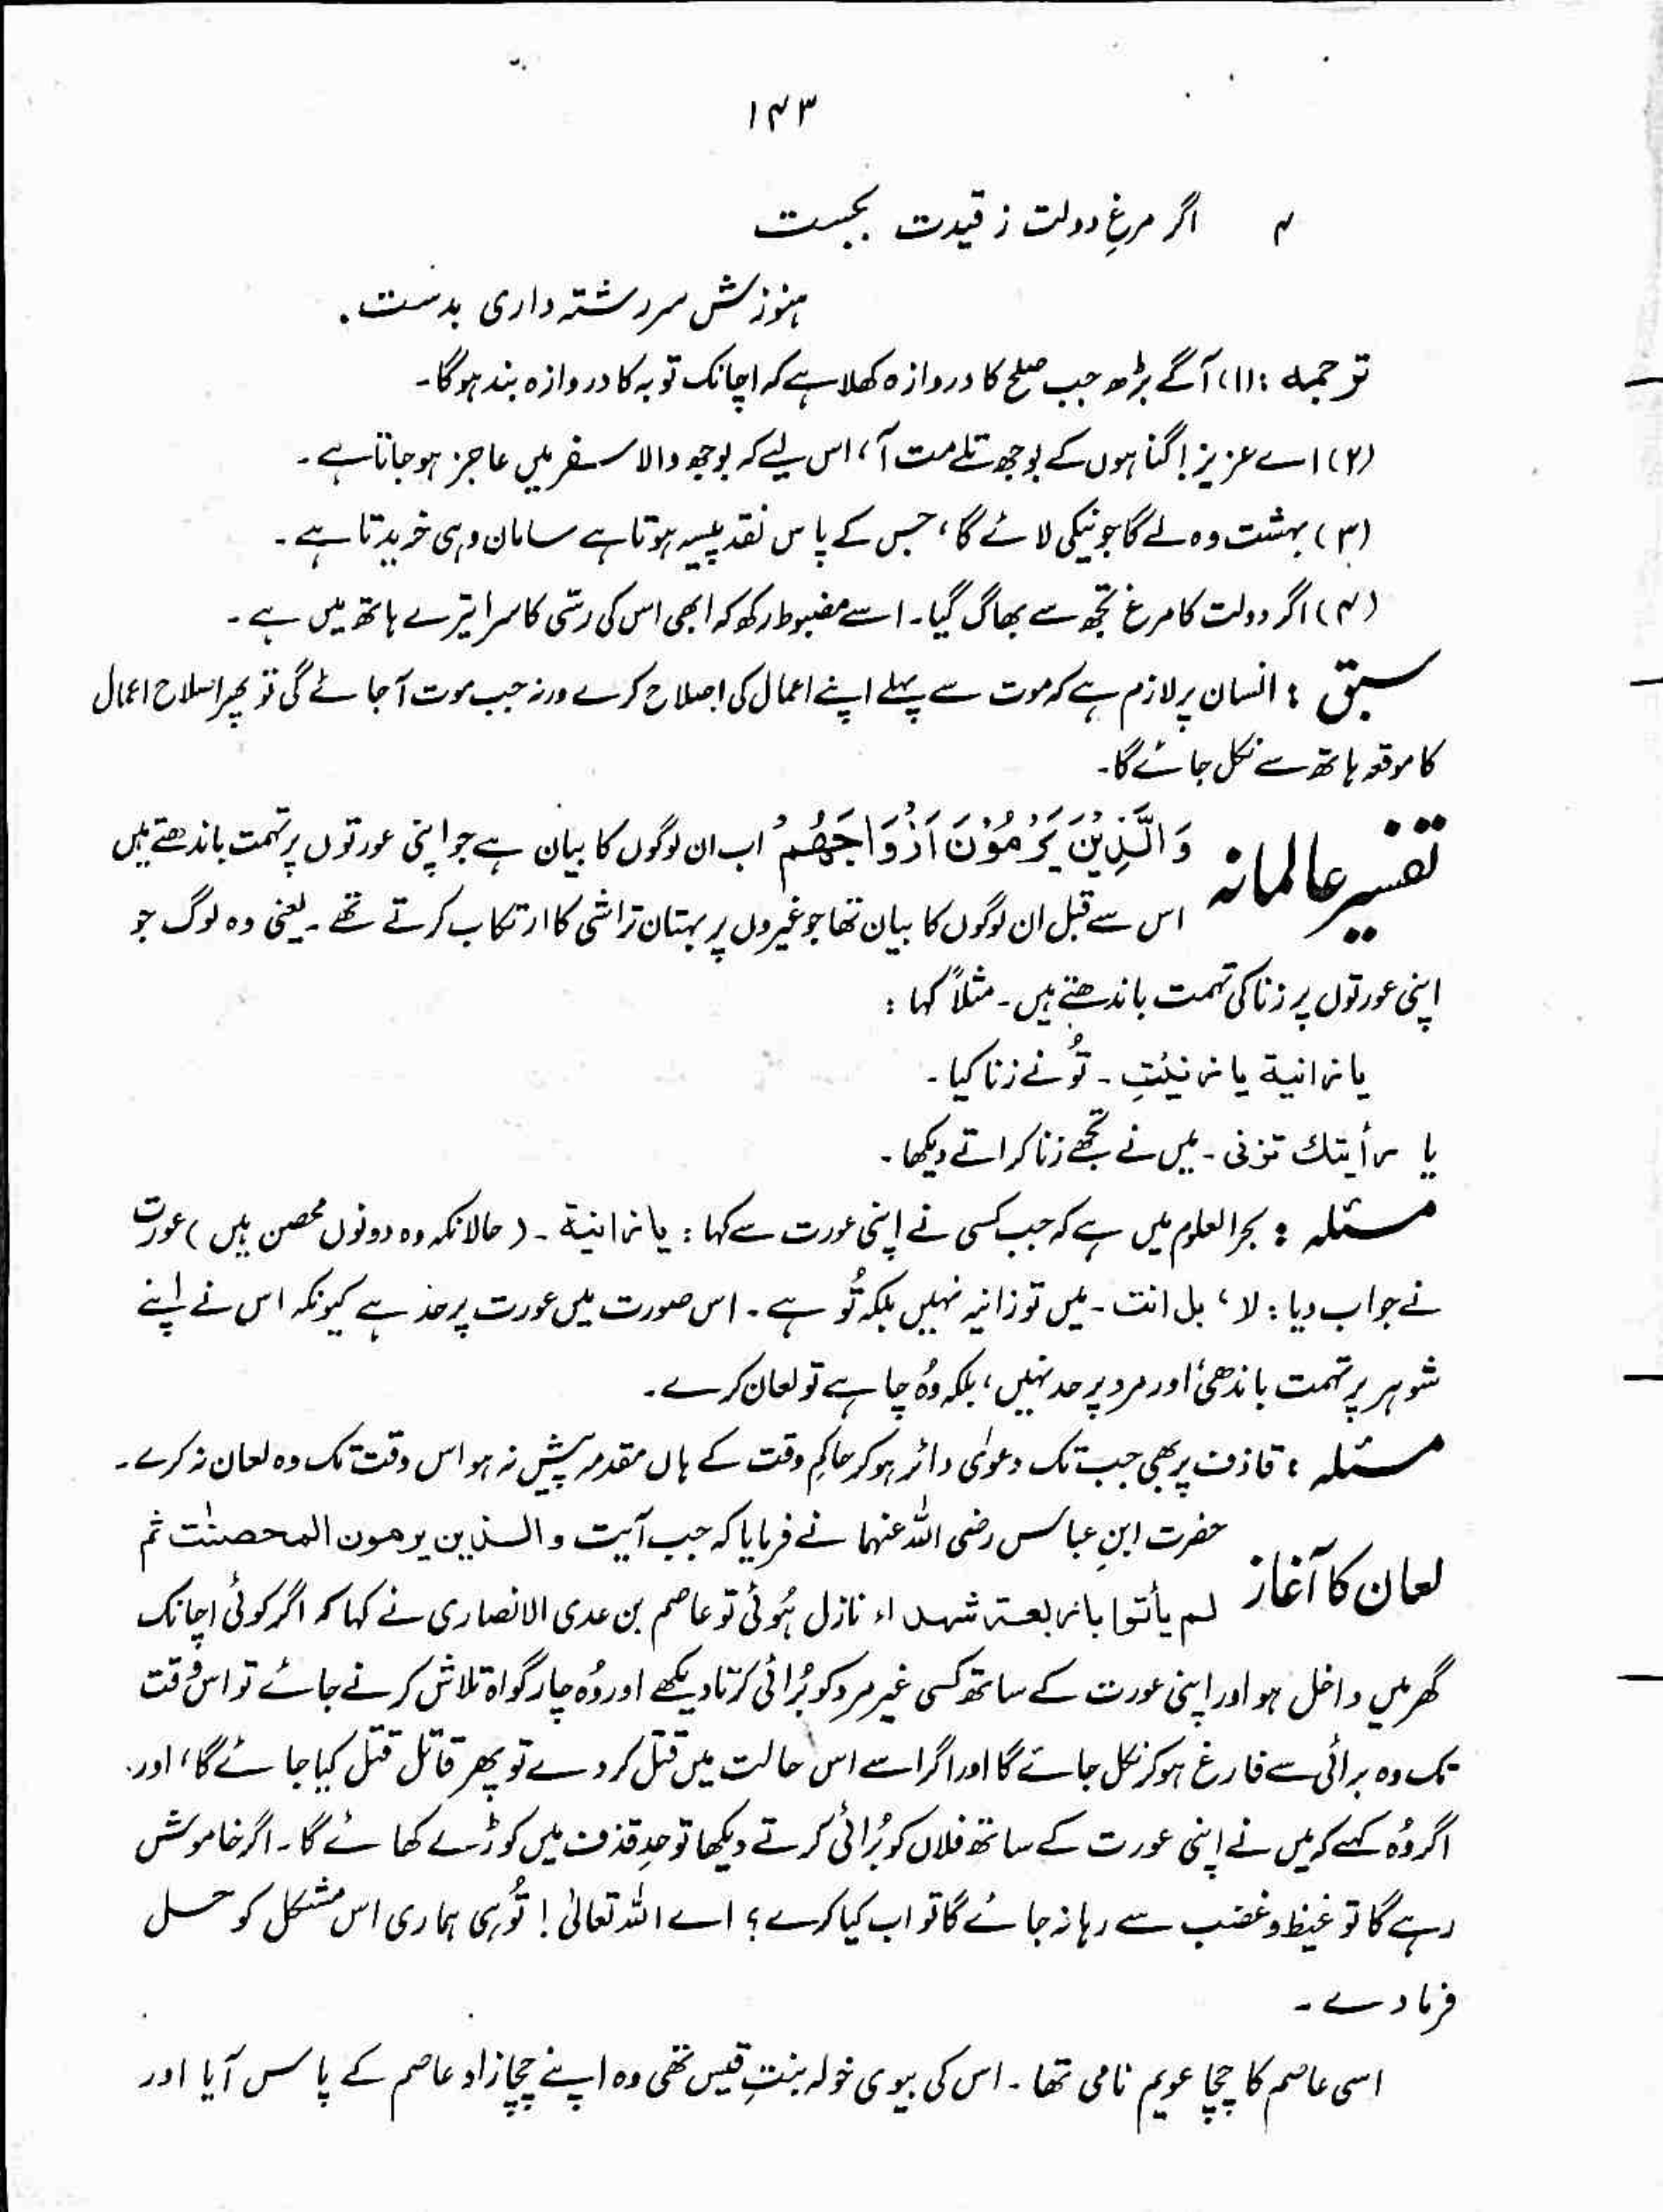 ۱۴۳
۴ اگر مرغِ دولت ز قیدت بجست
ہنوزش سررشتہ داری بدست.
ترجمہ : (۱) آگے بڑھ جب صلح کا دروازہ کھلا ہے کہ اچانک توبہ کا دروازہ بند ہوگا۔
(۲) اے عزیز! گناہوں کے بوجھ تلے مت آ، اس لیے کہ بوجھ والا سفر میں عاجز ہوجاتا ہے۔
(۳) بہشت وہ لے گا جو نیکی لائے گا، جس کے پاس نقد پیسہ ہوتا ہے سامان وہی خریدتا ہے۔
(۴) اگر دولت کا مرغ تجھ سے بھاگ گیا۔ اسے مضبوط رکھ کہ ابھی اس کی رسّی کا سرا تیرے ہاتھ میں ہے۔
سبق : انسان پر لازم ہے کہ موت سے پہلے اپنے اعمال کی اصلاح کرے ورنہ جب موت آجائے گی تو پھر اصلاح اعمال
کا موقعہ ہاتھ سے نکل جائے گا۔
تفسیر عالمانہ وَالَّذِیْنَ یَرْمُوْنَ اَزْوَاجَھُمْ اب ان لوگوں کا بیان ہے جو اپنی عورتوں پر تہمت باندھتے ہیں
اس سے قبل ان لوگوں کا بیان تھا جو غیروں پر بہتان تراشی کا ارتکاب کرتے تھے۔ یعنی وہ لوگ جو
اپنی عورتوں پر زنا کی تہمت باندھتے ہیں۔ مثلاً کہا :
یا زانیة یا زنیتِ۔ تُو نے زنا کیا۔
یا رأیتك تزنی۔ میں نے تجھے زنا کراتے دیکھا۔
مسئلہ : بحر العلوم میں ہے کہ جب کسی نے اپنی عورت سے کہا : یا زانیة۔ (حالانکہ وہ دونوں محصن ہیں) عورت
نے جواب دیا : لا، بل انت۔ میں تو زانیہ نہیں بلکہ تُو ہے۔ اس صورت میں عورت پر حد ہے کیونکہ اس نے اپنے
شوہر پر تہمت باندھی اور مرد پر حد نہیں، بلکہ وُہ چاہے تو لعان کرے۔
مسئلہ : قاذف پر بھی جب تک دعوٰی دائر ہوکر حاکمِ وقت کے ہاں مقدمہ پیش نہ ہو اس وقت تک وہ لعان نہ کرے۔
لعان کا آغاز حضرت ابنِ عباس رضی اللہ عنہما نے فرمایا کہ جب آیت والذین یرمون المحصنٰت ثم
لم یأتوا باربعة شہداء نازل ہُوئی تو عاصم بن عدی الانصاری نے کہا کہ اگر کوئی اچانک
گھر میں داخل ہو اور اپنی عورت کے ساتھ کسی غیر مرد کو بُرائی کرتا دیکھے اور وُہ چار گواہ تلاش کرنے جائے تو اس وقت
تک وہ برائی سے فارغ ہوکر نکل جائے گا اور اگر اسے اس حالت میں قتل کردے تو پھر قاتل قتل کیا جائے گا، اور
اگر وُہ کہے کہ میں نے اپنی عورت کے ساتھ فلاں کو بُرائی کرتے دیکھا تو حدِ قذف میں کوڑے کھائے گا۔ اگر خاموش
رہے گا تو غیظ و غضب سے رہا نہ جائے گا تو اب کیا کرے؟ اے اللہ تعالیٰ! تُو ہی ہماری اس مشکل کو حل
فرمادے۔
اسی عاصم کا چچا عویم نامی تھا۔ اس کی بیوی خولہ بنتِ قیس تھی وہ اپنے چچازاد عاصم کے پاس آیا اور